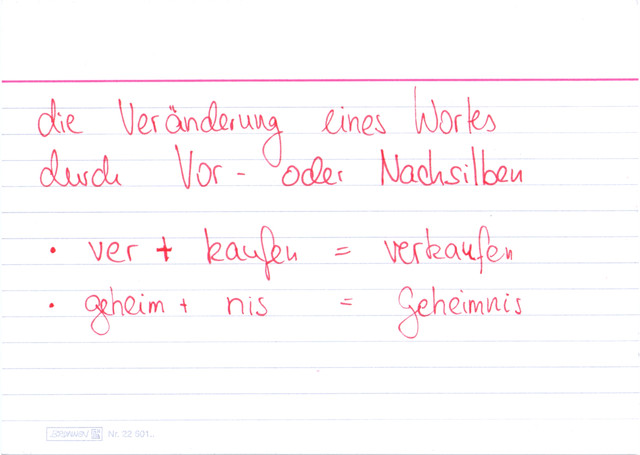 die Veränderung eines Wortes
durch Vor- oder Nachsilben
• ver + kaufen = verkaufen
• geheim + nis = Geheimnis
BRUNNEN Nr. 22 501..